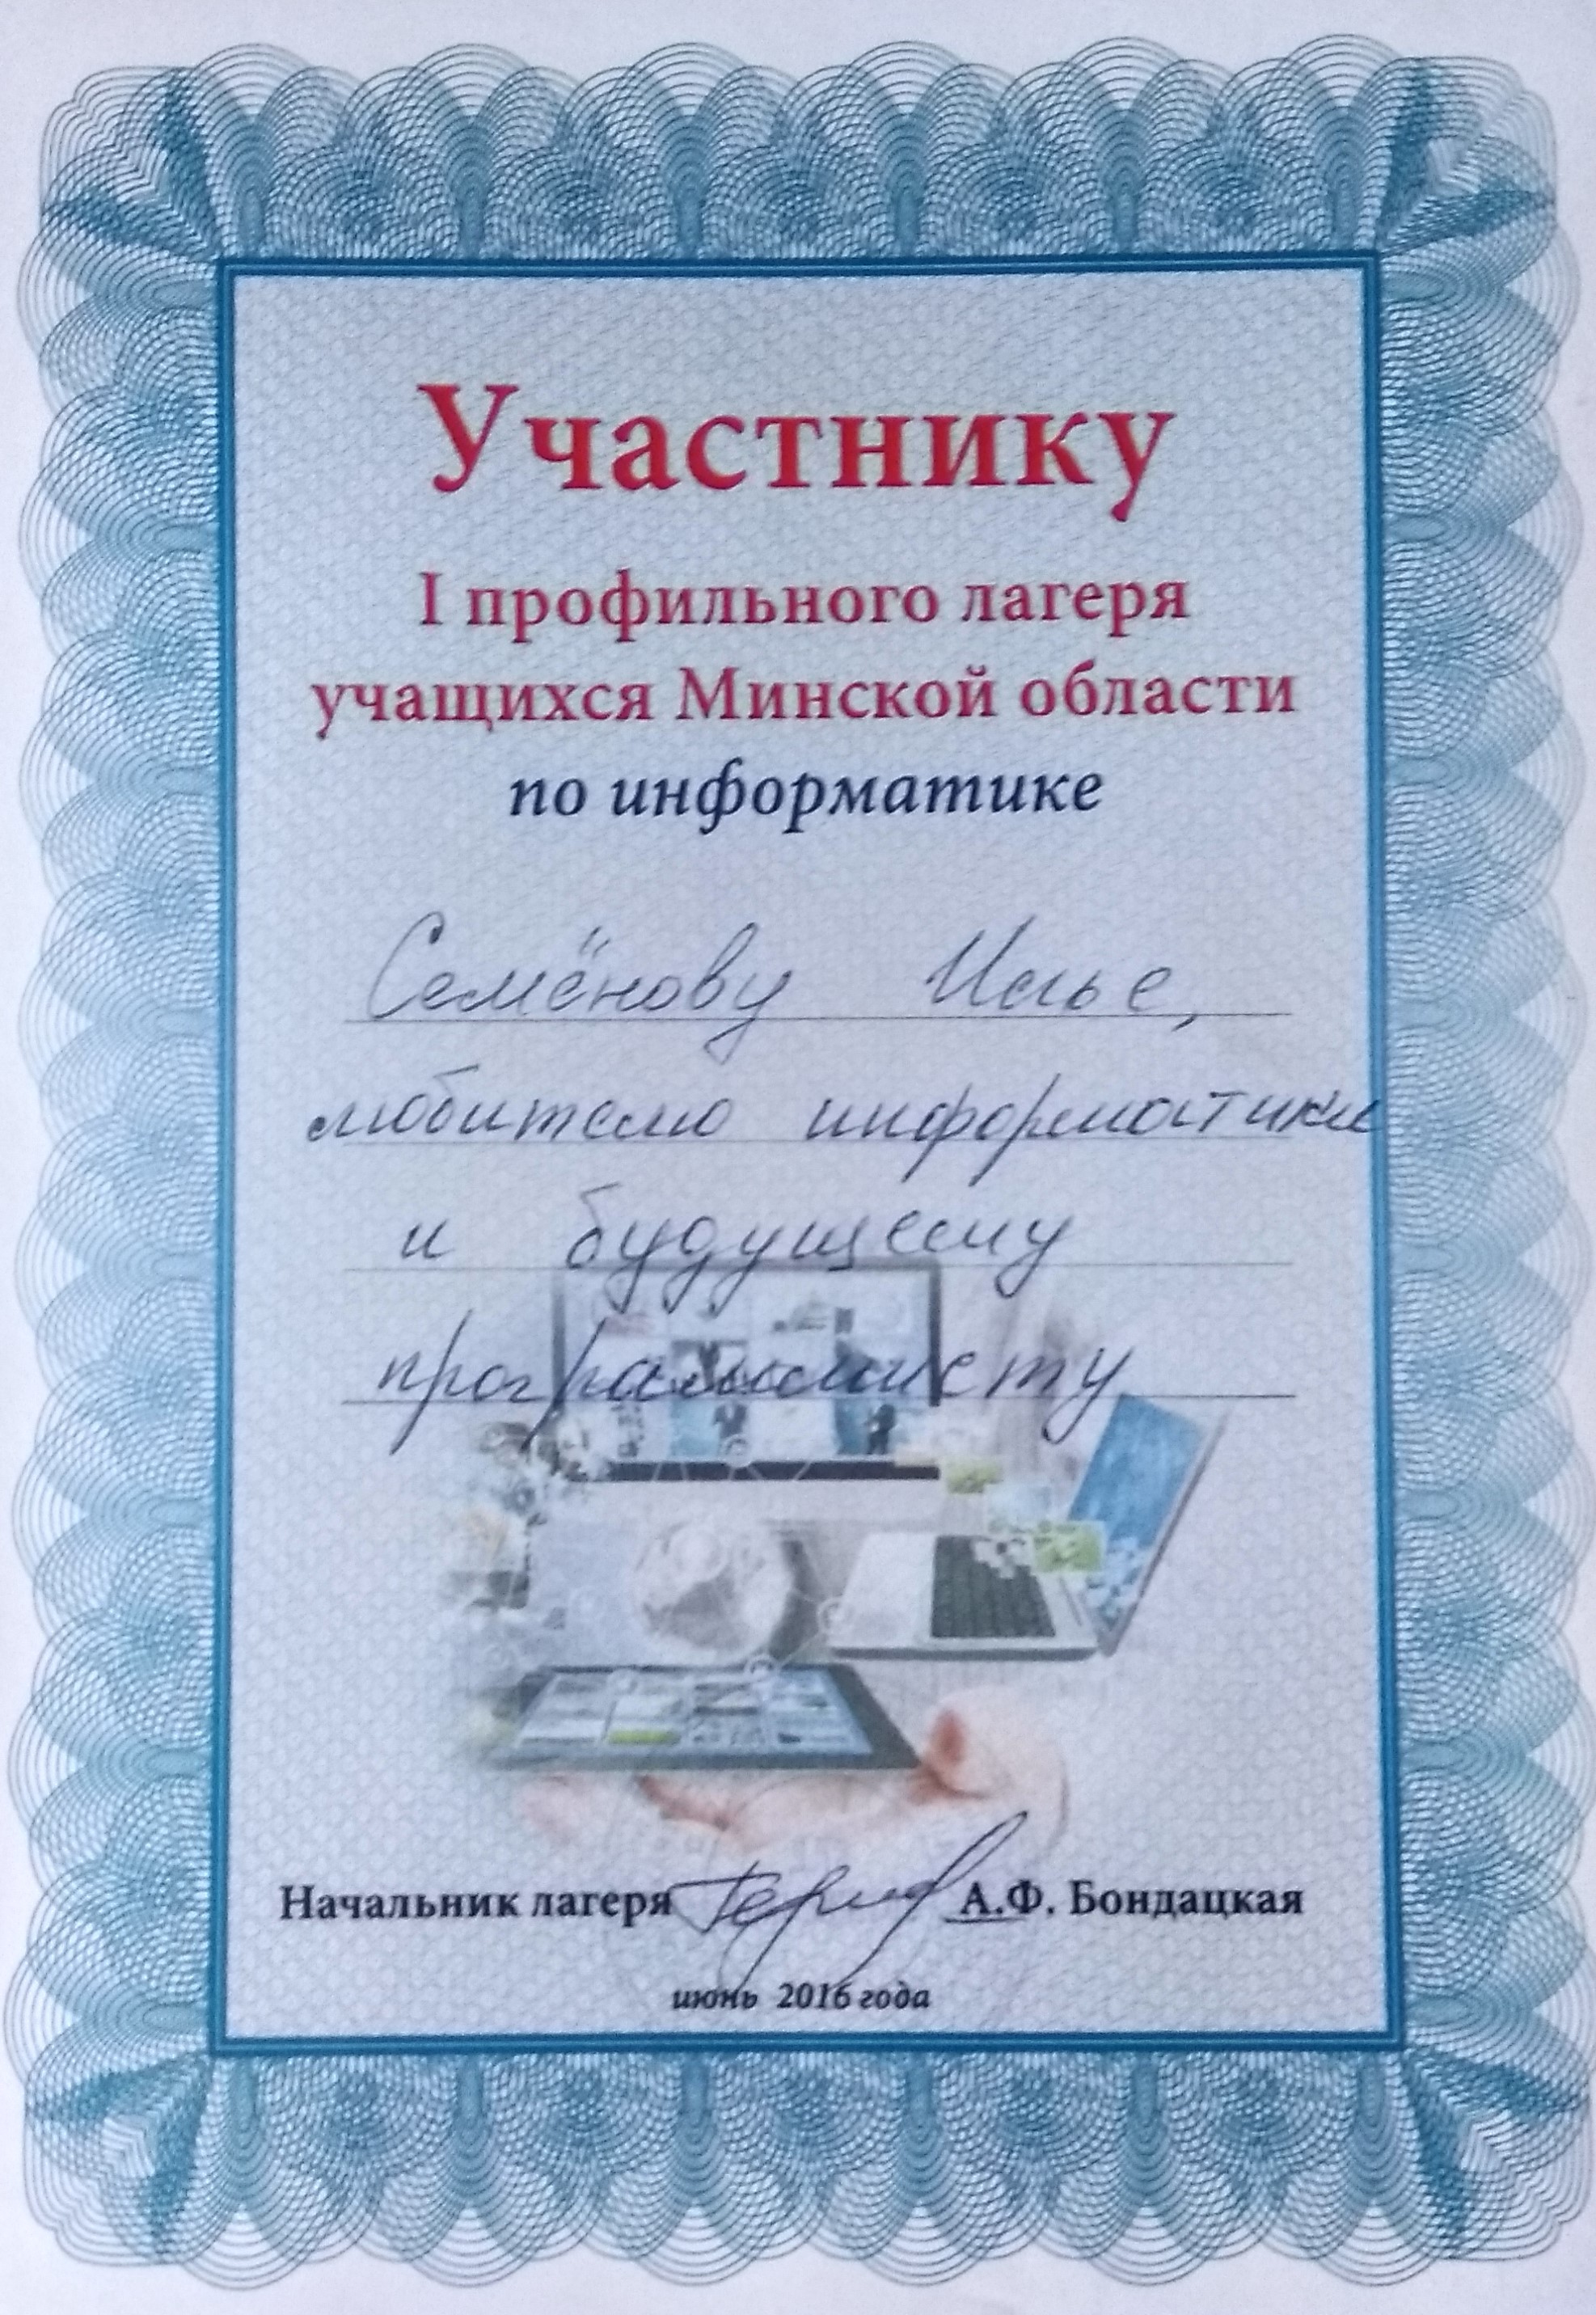 Участнику
I профильного лагеря
учащихся Минской области
по информатике
Семёнову Илье,
любителю информатики
и будущему
программисту
Начальник лагеря А.Ф. Бондацкая
июнь 2016 года